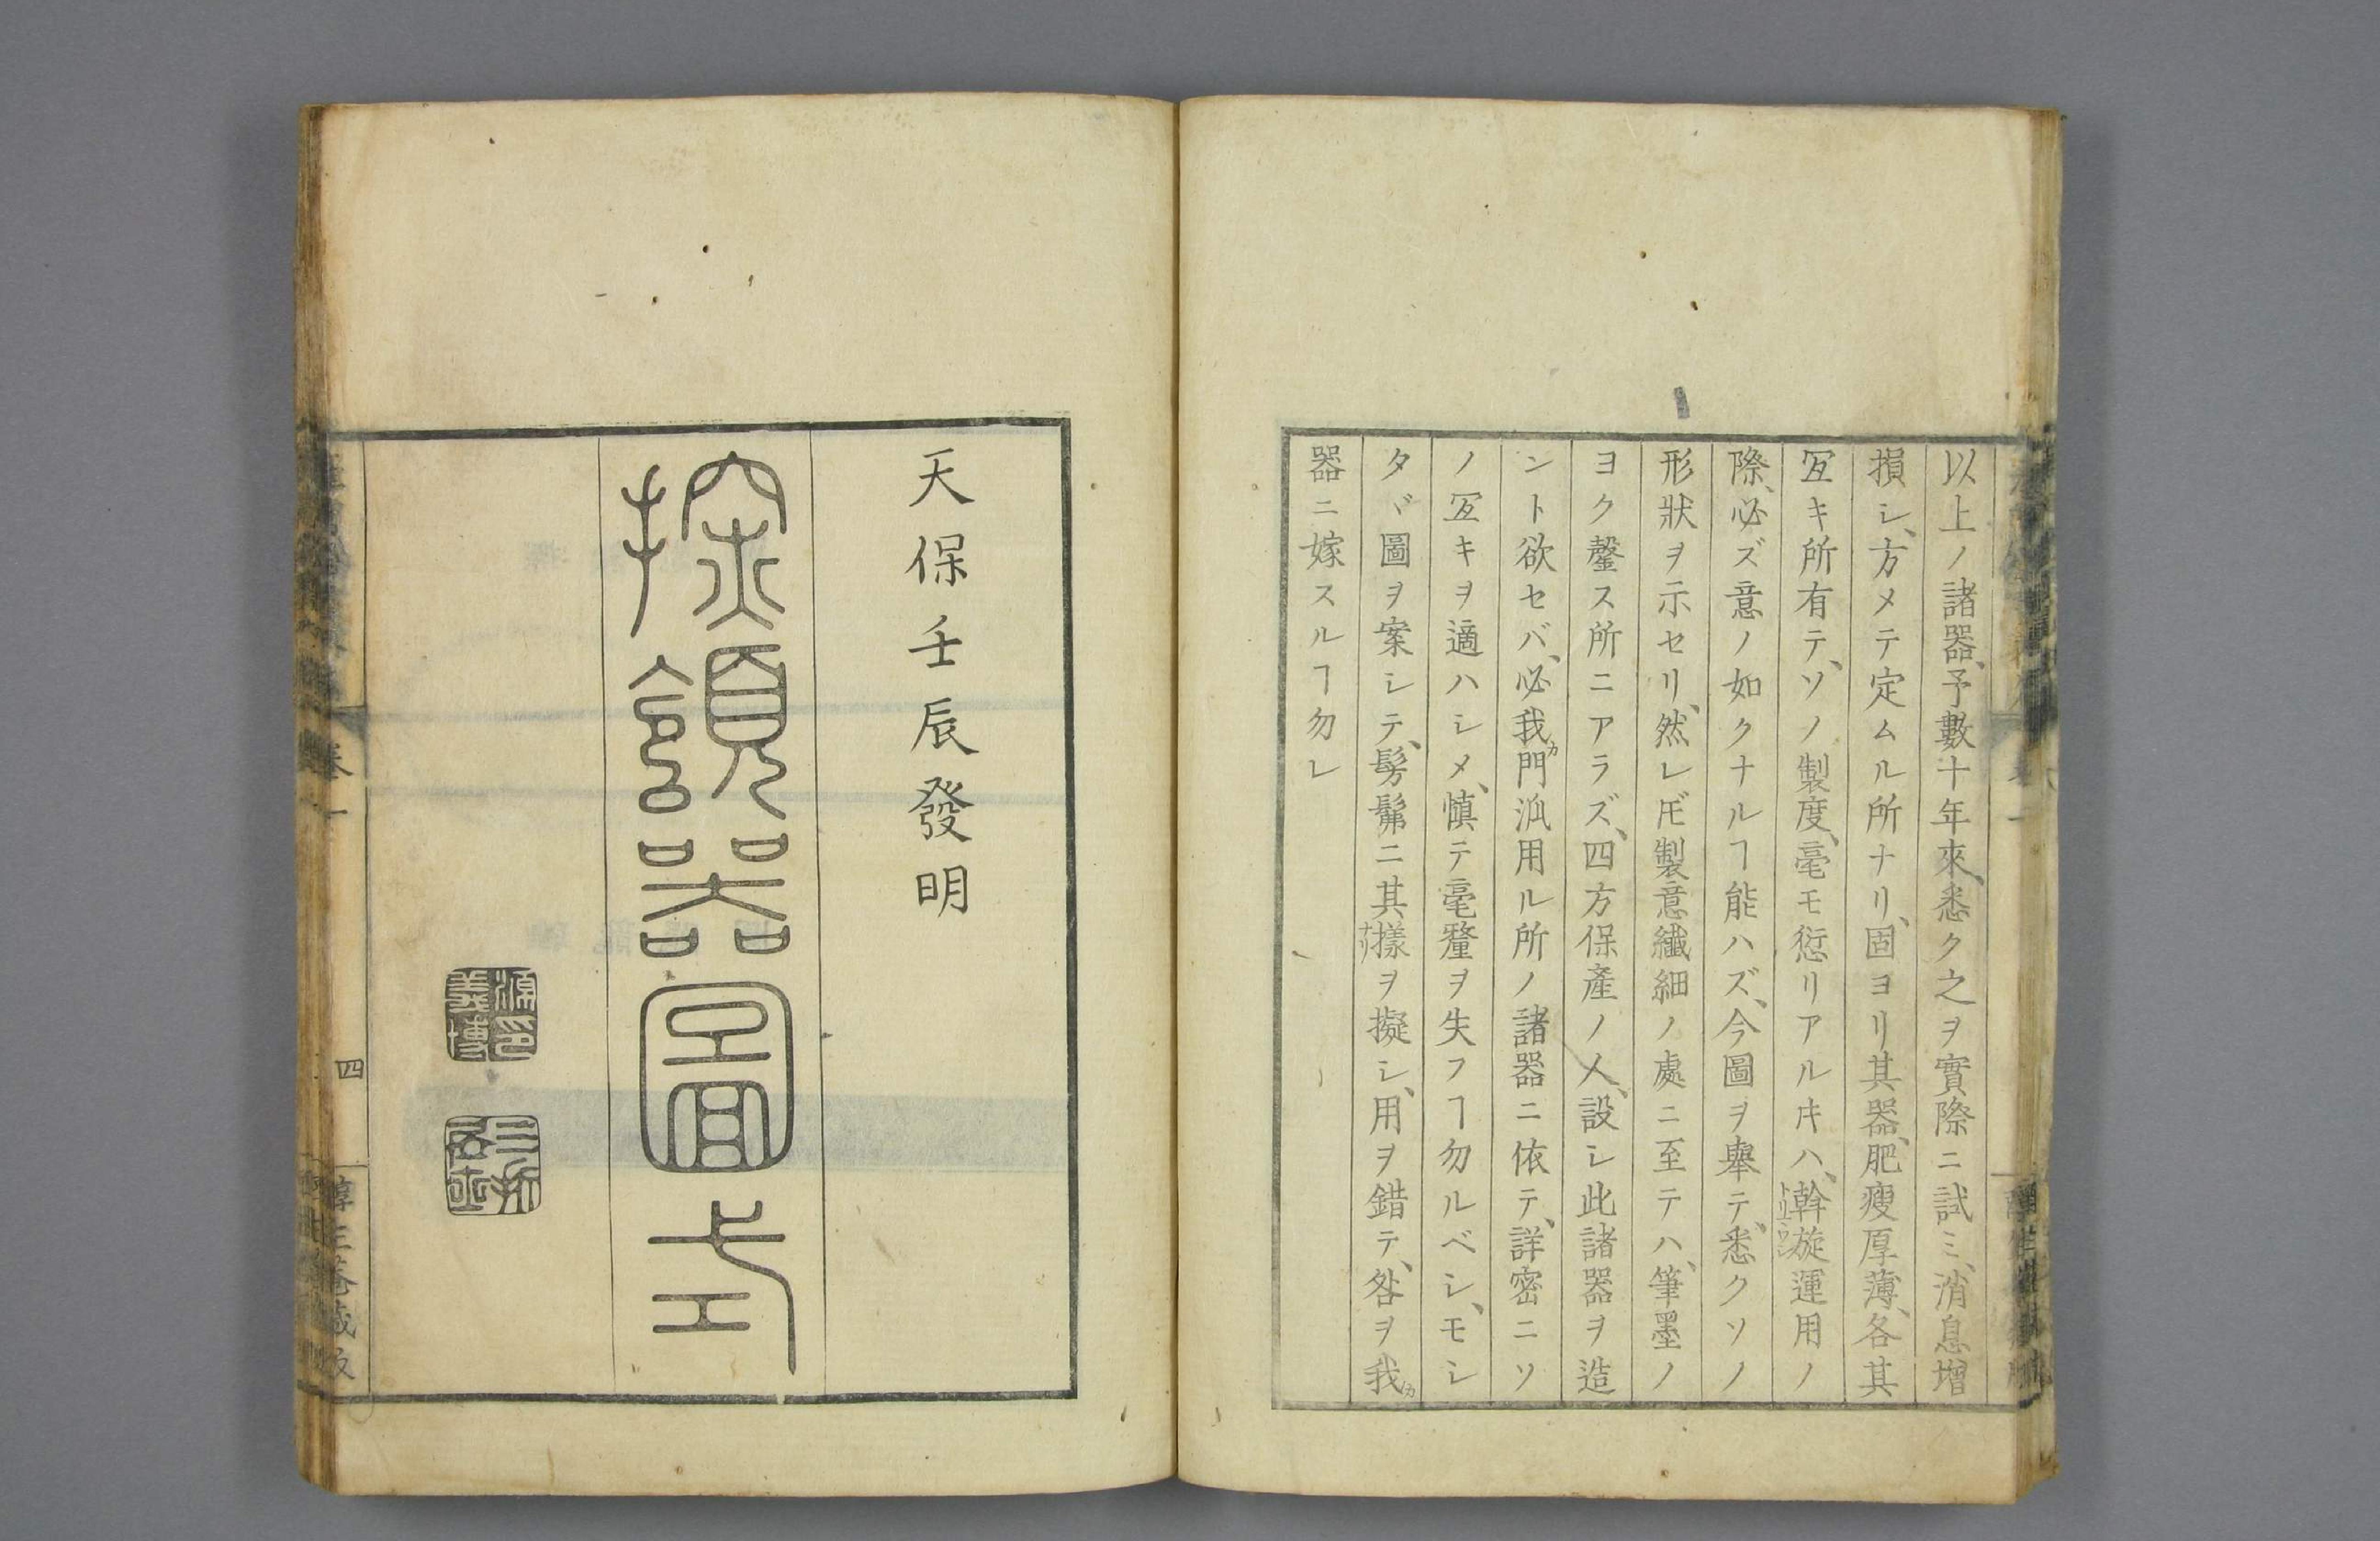 以上ノ諸器、予數十年來、悉ク之ヲ實際ニ試ミ、消息增
損シ、方メテ定ムル所ナリ、固ヨリ其器、肥瘦厚薄、各其
冝キ所有テ、ソノ製度、毫モ愆リアル𪜈ハ、斡旋運用ノ
際、必ズ意ノ如クナルヿ能ハズ、今圖ヲ擧テ、悉クソノ
形狀ヲ示セリ、然レ𪜈製意纖細ノ處ニ至テハ、筆墨ノ
ヨク罄ス所ニアラズ、四方保產ノ人、設シ此諸器ヲ造
ント欲セバ、必我門泒用ル所ノ諸器ニ依テ、詳密ニソ
ノ冝キヲ適ハシメ、慎テ毫釐ヲ失フヿ勿ルベシ、モシ
タヾ圖ヲ案シテ、髣髴ニ其樣ヲ擬シ、用ヲ錯テ、咎ヲ我
器ニ嫁スルヿ勿レ
天保壬辰發明
探頷器圖式
源印義博
卷一
四